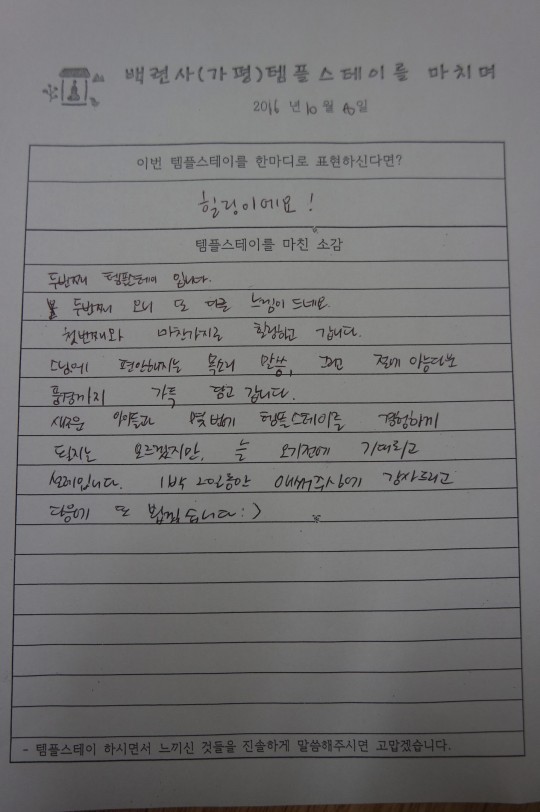 백련사(가평)템플스테이를 마치며
2016 년 10 월 일
이번 템플스테이를 한마디로 표현하신다면?
힐링이에요 !
템플스테이를 마친 소감
두번째 템플스테이 입니다.
두번째 오니 또 다른 느낌이 드네요.
첫번째와 마찬가지로 힐링하고 갑니다.
스님에 편안해지는 목소리 말씀, 그리고 절에 아름다운
풍경까지 가득 담고 갑니다.
새로운 아이들과 몇번에 템플스테이를 경험하게
될지는 모르겠지만, 늘 오기전에 기대되고
설레입니다. 1박 2일동안 애써주심에 감사드리고
다음에 또 뵙겠습니다 : )
- 템플스테이 하시면서 느끼신 것들을 진솔하게 말씀해주시면 고맙겠습니다.